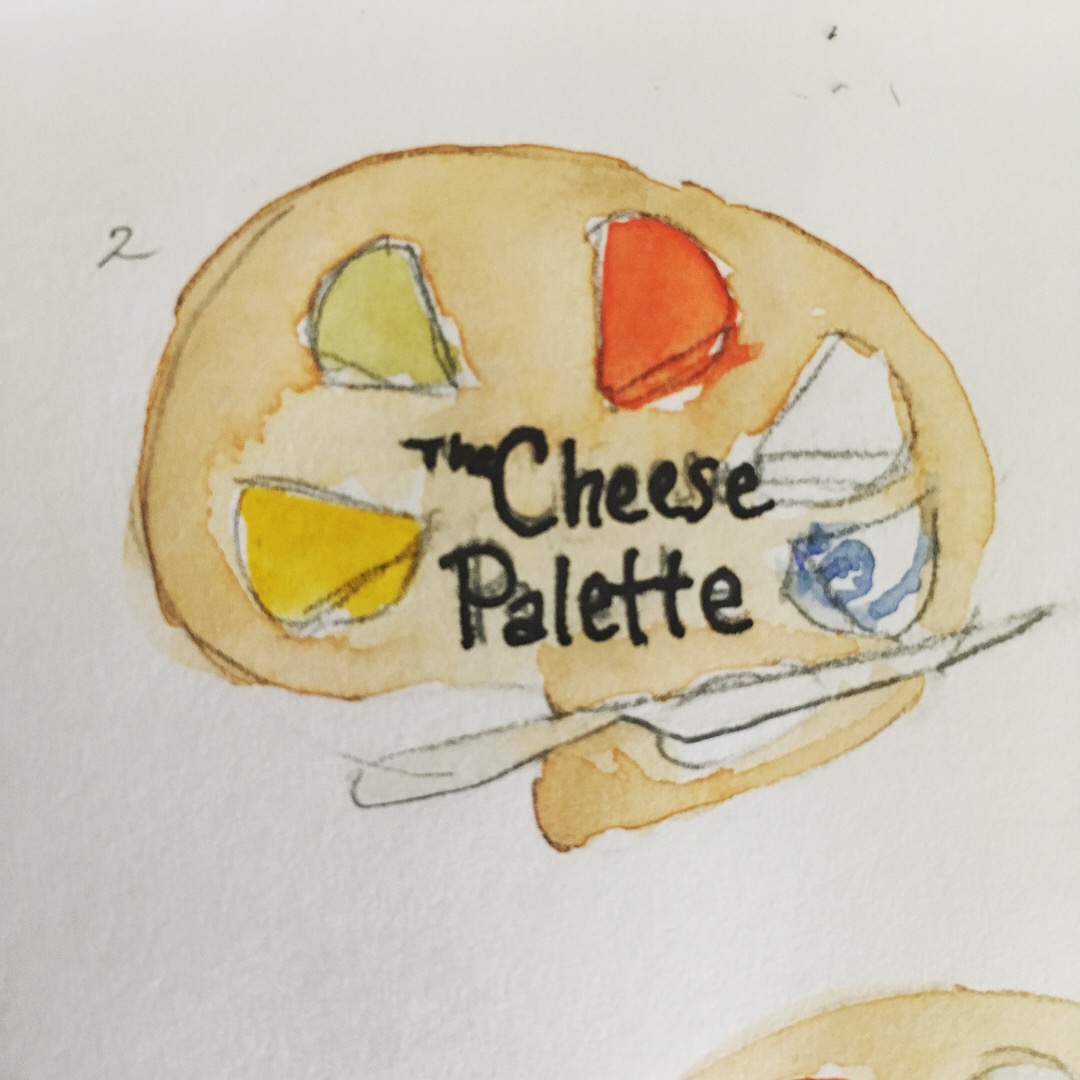 2
The Cheese
Palette